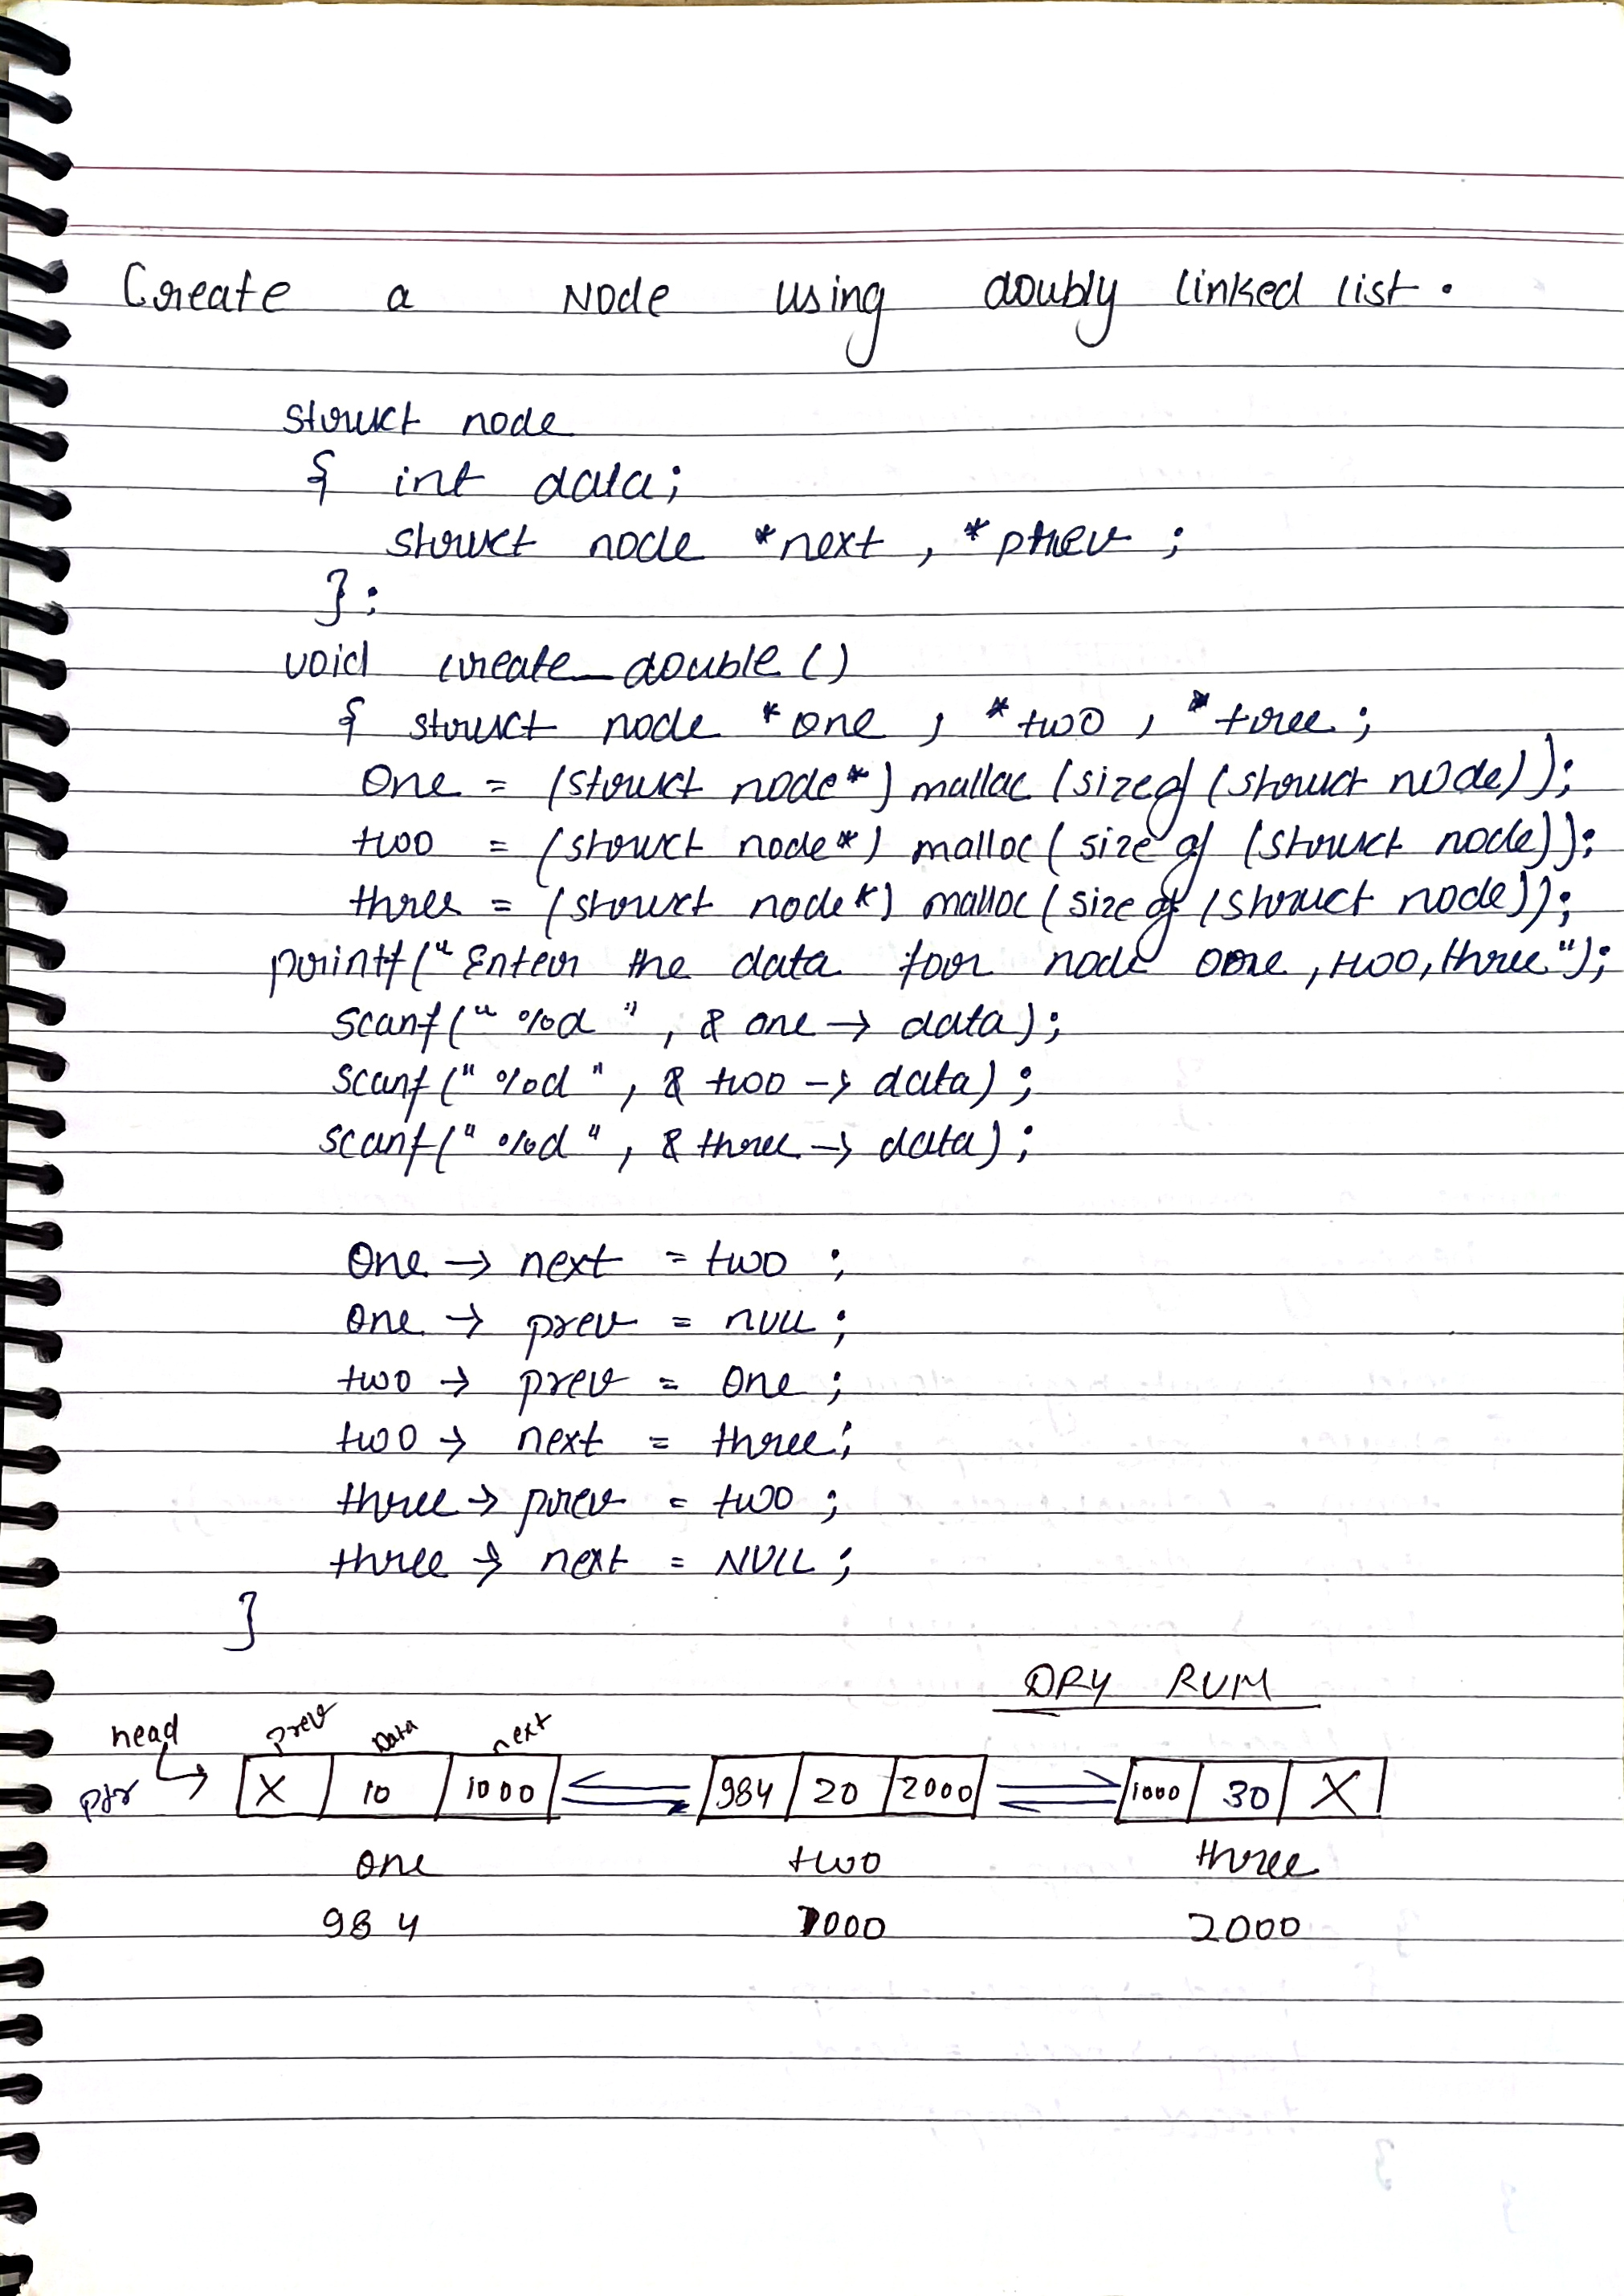 Create a Node using doubly linked list.
struct node
{ int data;
struct node *next, *prev ;
};
void create_double ()
{ struct node *one , *two , *tree ;
One = (struct node*) mallac (sizeof (struct node));
two = (struct node*) malloc (size of (struct node));
three = (struct node*) malloc (size of (struct node));
printf("Enter the data for node oone, two, three");
scanf("%d", & one → data);
scanf("%d", & two → data) ;
scanf("%d", & three → data) ;
One → next = two ;
One → prev = NULL ;
two → prev = One ;
two → next = three;
three → prev = two ;
three → next = NULL ;
}
DRY RUM
head prev Data next
ptr X 10 1000 984 20 2000 1000 30 X
one two three
984 1000 2000